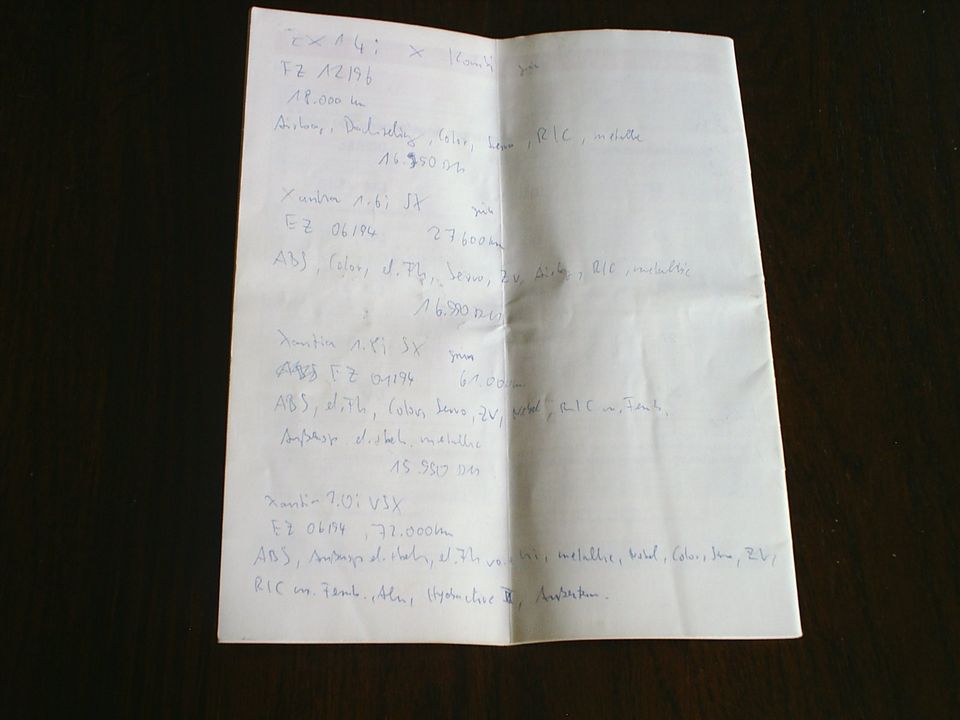 ZX 1.4i X Kombi grün
EZ 12/96
18.000 km
Airbag, Dachreling, Color, Servo, R/C, metallic
16.950 DM
Xantia 1.6i SX grün
EZ 06/94 27.600 km
ABS, Color, el. Fh, Servo, ZV, Airbag, R/C, metallic
16.990 DM
Xantia 1.8i SX
ABS EZ 01/94 61.000 km
ABS, el. Fh, Color, Servo, ZV, Nebel, R/C m. Fernb.
Außensp. el. + beh. metallic
15.990 DM
Xantia 2.0i VSX
EZ 06/94, 72.000 km
ABS, Außensp el. + beh, el. Fh metallic, Nebel, Color, Servo, ZV,
R/C m. Fernb., Alu, Hydractive II, Außentem.